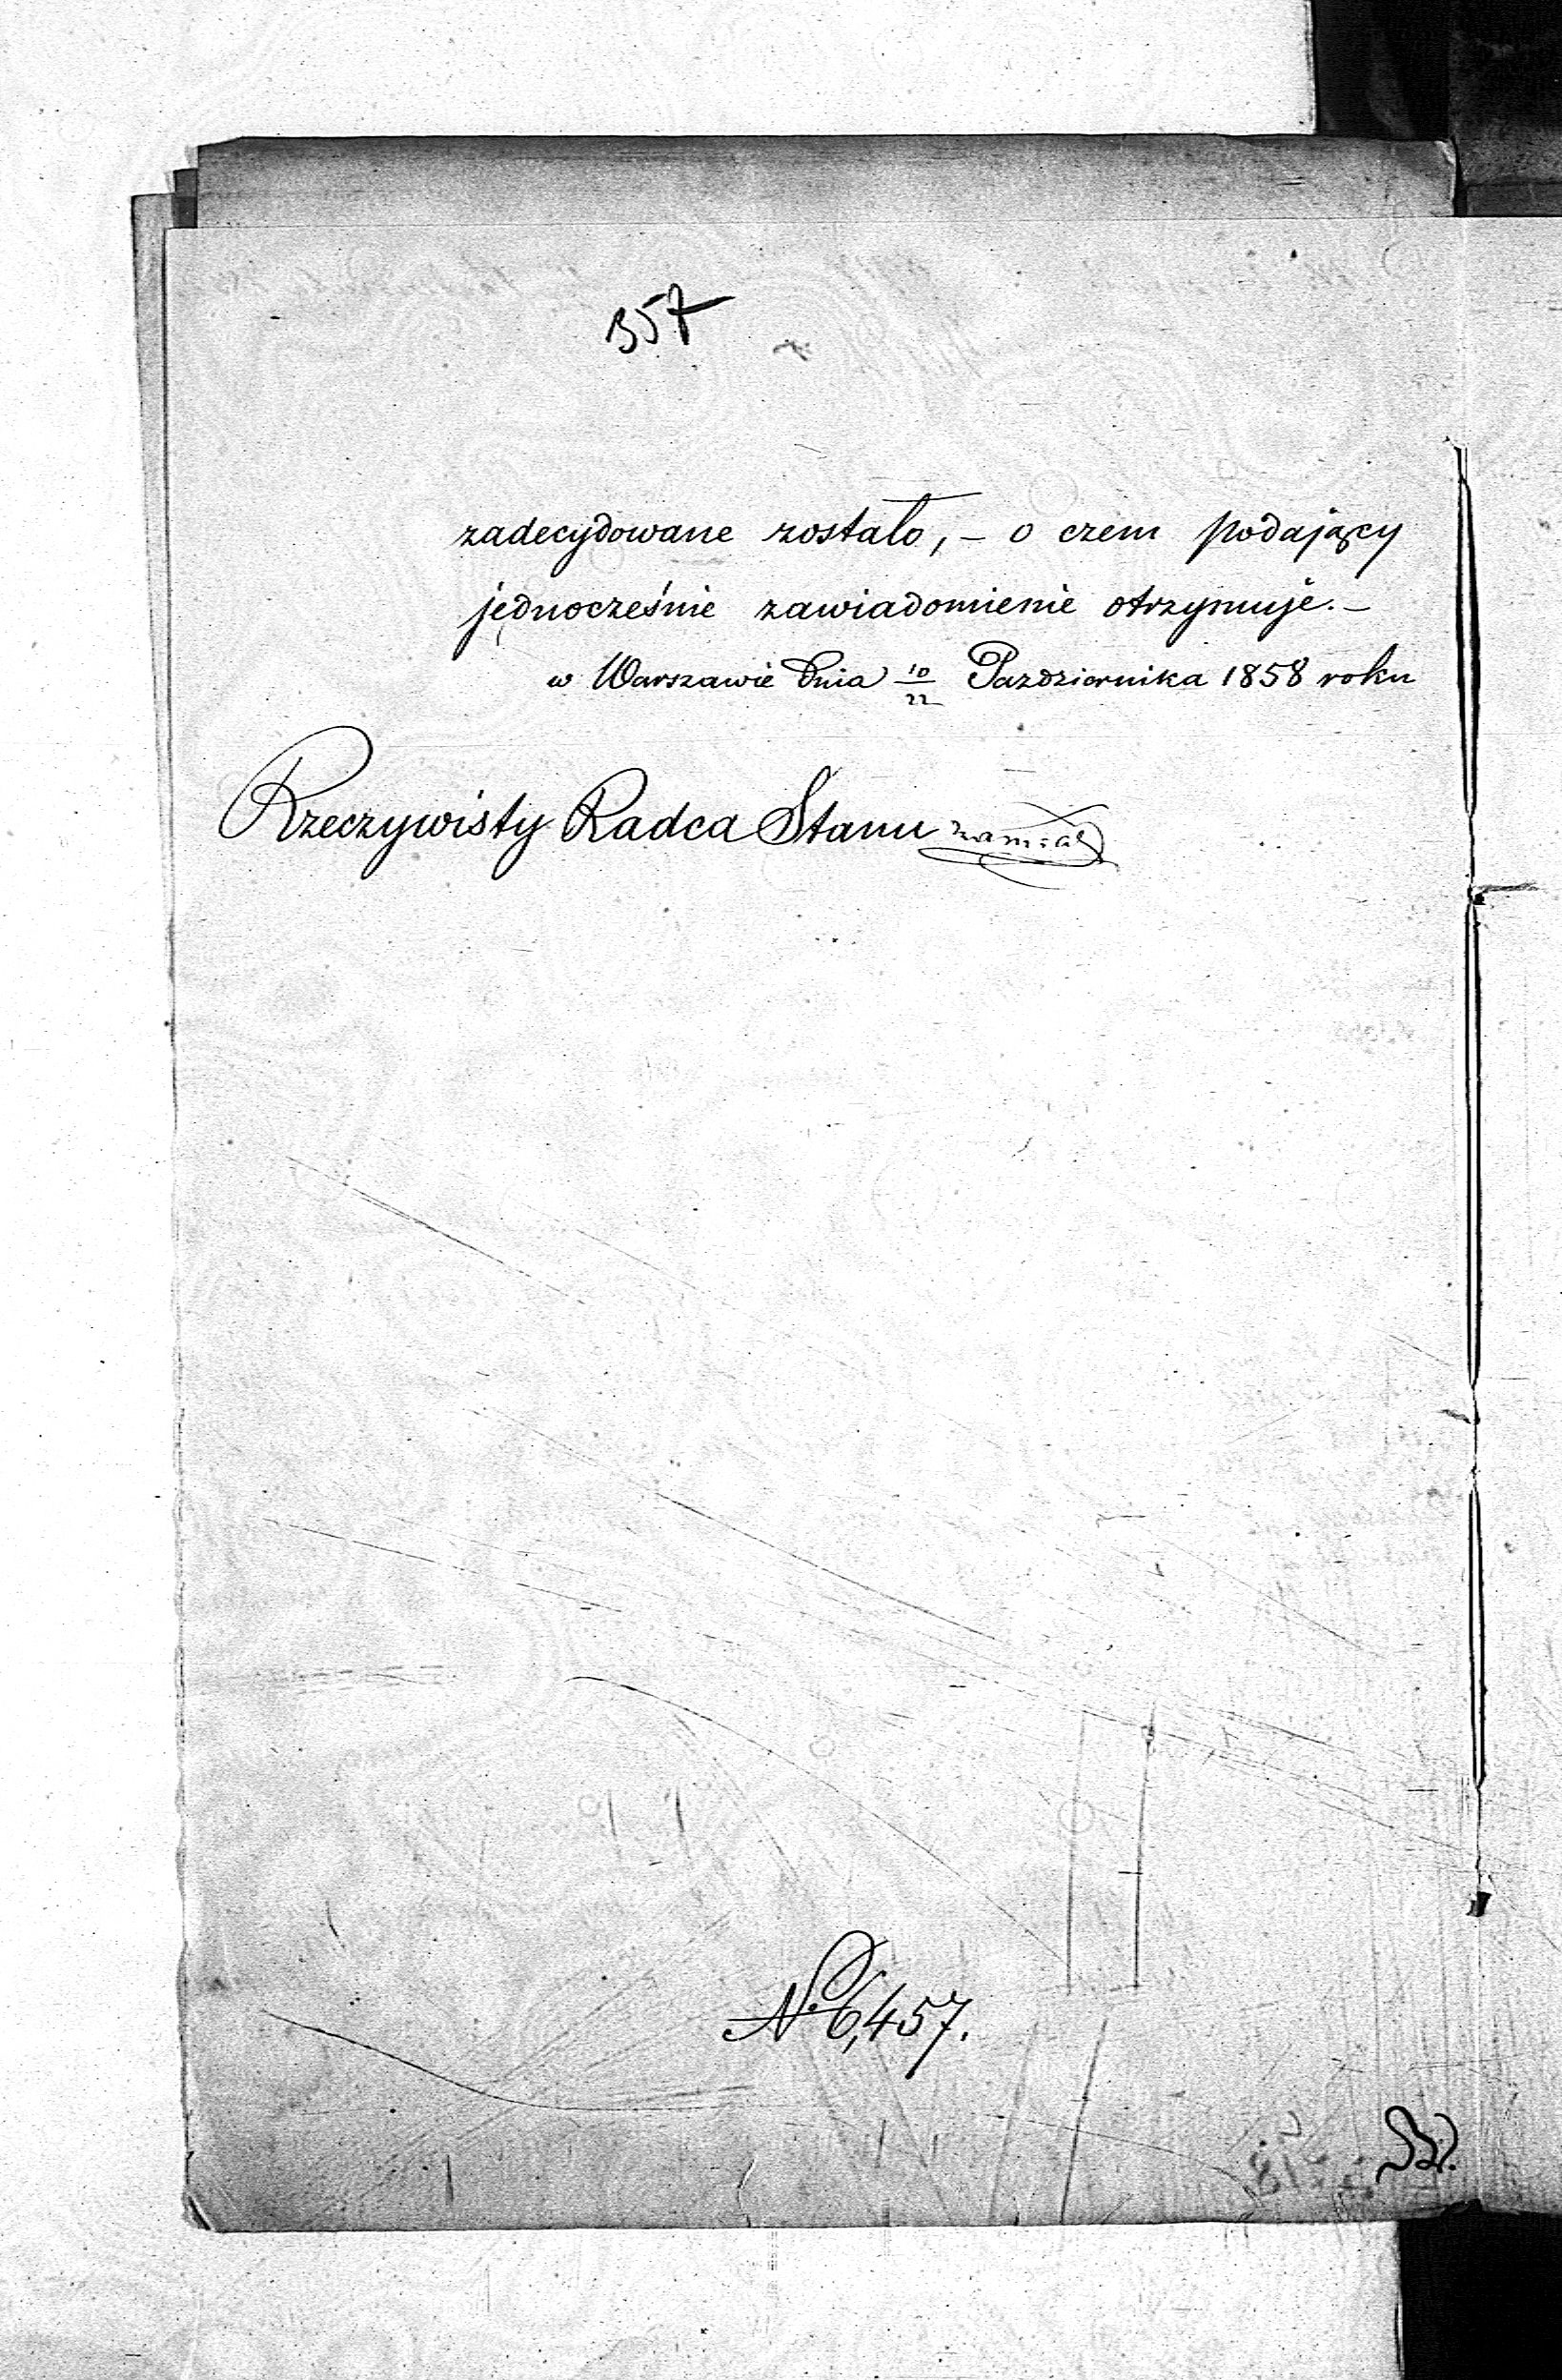 357
zadecydowane zostało, – o czem podający
jednocześnie zawiadomienie otrzymuje. –
w Warszawie Dnia 10/22 Pazdziernika 1858 roku
Rzeczywisty Radca Stanu
N° 6,457.